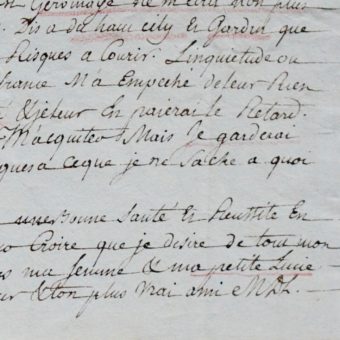 Geromage ne m'ecrit non plus
Dis a de ham city & Gardin que
Risques a Courir. L'inquietude ou
france M'a Empeché de leur Rien
& je leur En paierai le Retard.
M'acquiteo Mais Je garderai
a ceque je ne Sache a quoi
une bonne Santé Et Reussite En
Croire que je desire de tout mon
ma femme & ma petite Lucie
& ton plus Vrai ami